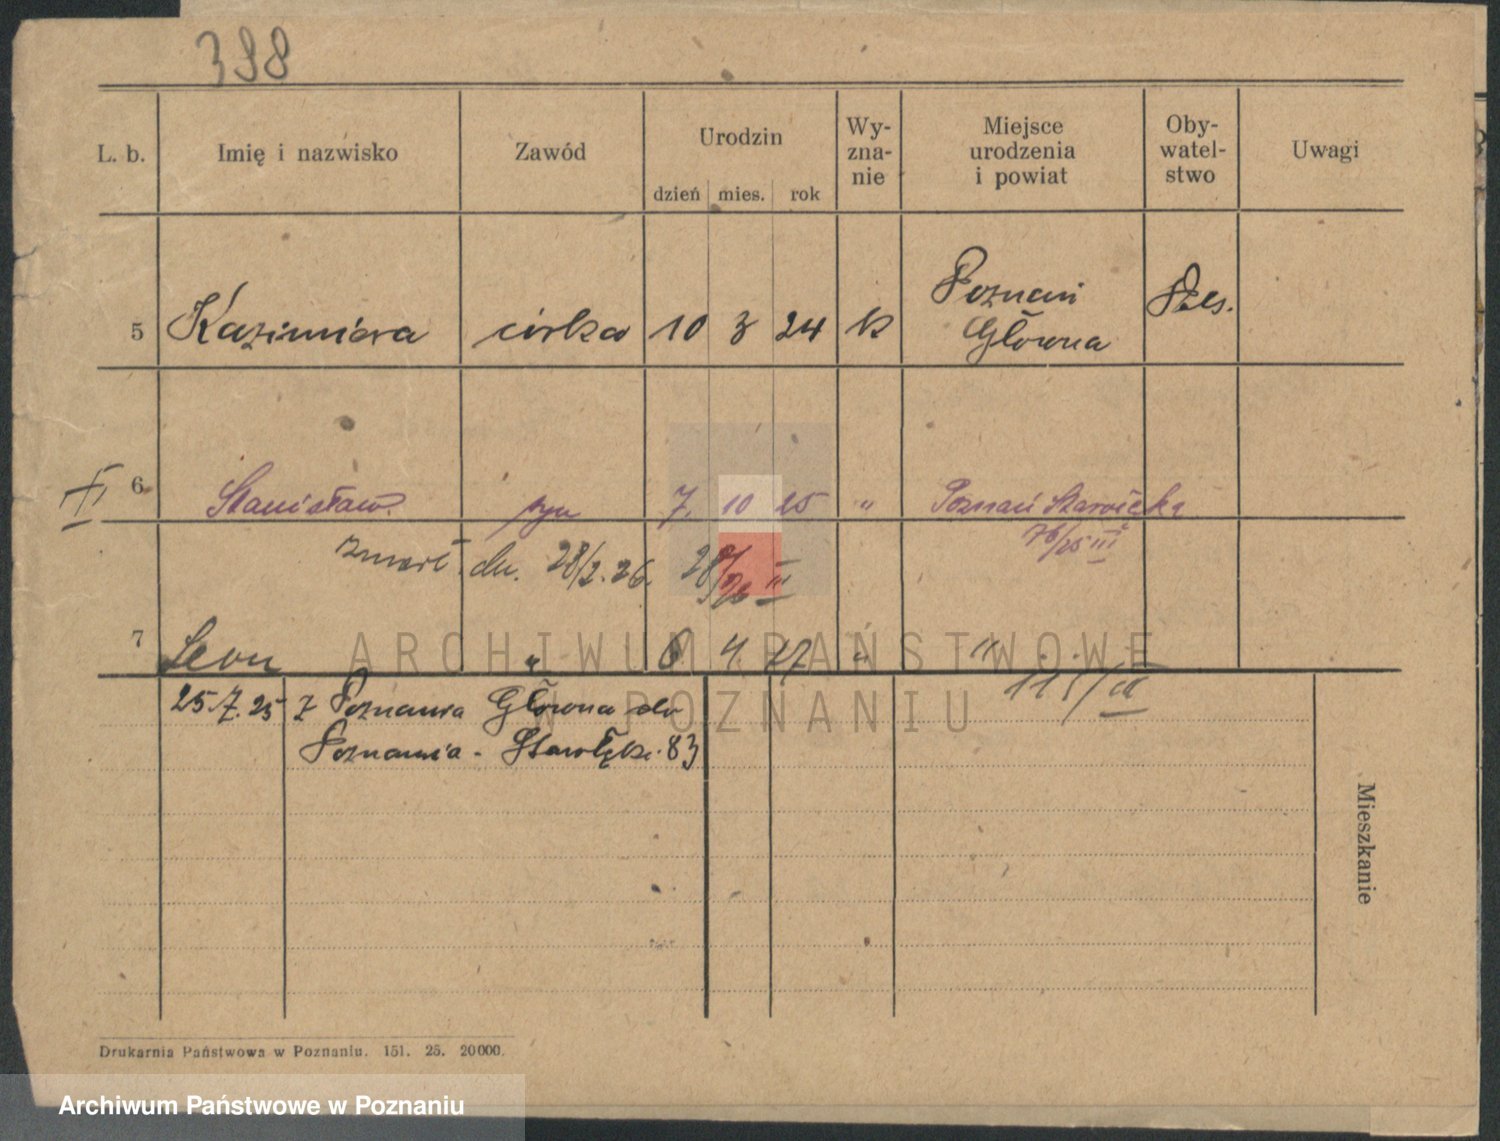 398
L. b. Imię i nazwisko Zawód Urodzin dzień mies. rok Wy-zna-nie Miejsce urodzenia i powiat Oby-watel-stwo Uwagi
5 Kazimiera córka 10 3 24 k Poznań Główna
6 Stanisław syn 7. 10 25 " Poznań Starołęka
76/25 III
zmarł dn. 28/2. 26.
7 Leon " 6 4 27 " "
115/
25.7.25 z Poznania Główna do
Poznania - Starołęka 83
Mieszkanie
Drukarnia Państwowa w Poznaniu. 151. 25. 20000.
ARCHIWUM PAŃSTWOWE
W POZNANIU
Archiwum Państwowe w Poznaniu